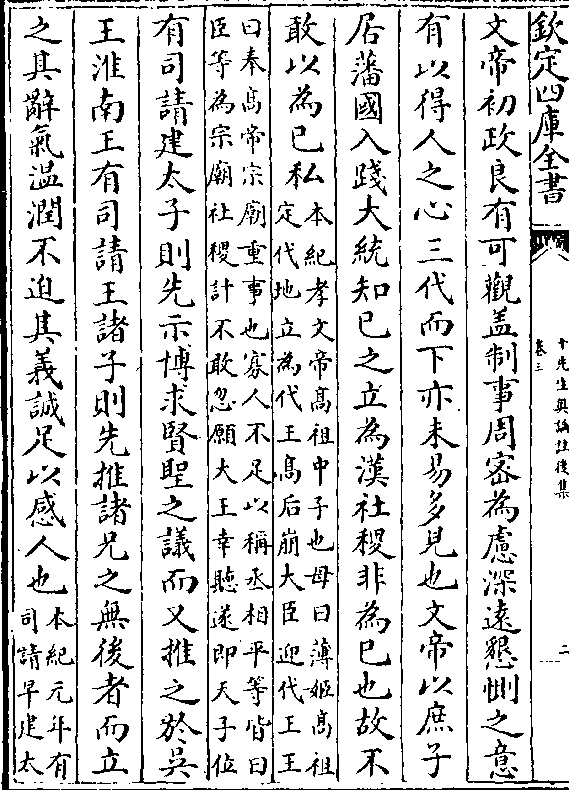 欽定四庫全書
十先生奧論註後集
卷三
二
文帝初政良有可觀盖制事周密為慮深遠懇惻之意
有以得人之心三代而下亦未易多見也文帝以庶子
居藩國入踐大統知已之立為漢社稷非為已也故不
敢以為已私本紀孝文帝髙祖中子也母曰薄姬髙祖
定代地立為代王髙后崩大臣迎代王王
曰奉髙帝宗廟重事也寡人不足以稱丞相平等皆曰
臣等為宗廟社稷計不敢忽願大王幸聽遂即天子位
有司請建太子則先示博求賢聖之議而又推之於吳
王淮南王有司請王諸子則先推諸兄之無後者而立
之其辭氣温潤不迫其義誠足以感人也本紀元年有
司請早建太